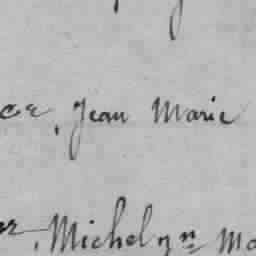 ce, Jean Marie
, Michel yn Ma